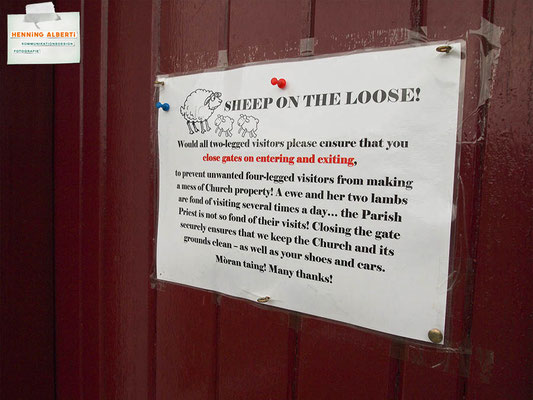 HENNING ALBERTI
KOMMUNIKATIONSDESIGN
FOTOGRAFIE
SHEEP ON THE LOOSE!
Would all two-legged visitors please ensure that you
close gates on entering and exiting,
to prevent unwanted four-legged visitors from making
a mess of Church property! A ewe and her two lambs
are fond of visiting several times a day... the Parish
Priest is not so fond of their visits! Closing the gate
securely ensures that we keep the Church and its
grounds clean – as well as your shoes and cars.
Mòran taing! Many thanks!